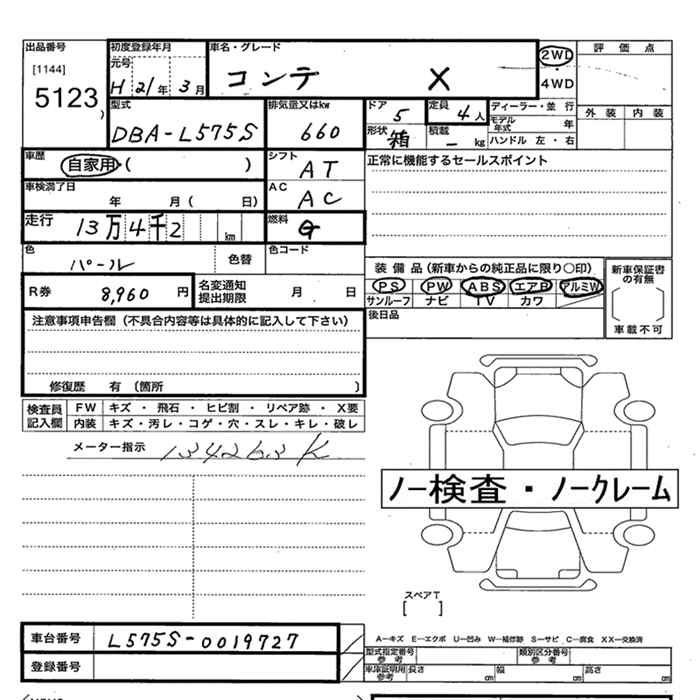 出品番号 初度登録年月 車名・グレード 評価点
[1144] 5123
元号 H 21年 3月 コンテ X 2WD・4WD
外装 内装
型式 DBA-L575S
排気量又はkw 660
ドア 5 定員 4人 ディーラー・並行
形状 箱 積載 - kg モデル年式 年
ハンドル 左・右
車歴 自家用・( ) シフト AT
正常に機能するセールスポイント
車検満了日 年 月( 日) AC AC
走行 13万4千2 km 燃料 G
色 パール 色替 色コード
装備品(新車からの純正品に限り〇印)
PS PW ABS エアB アルミW
サンルーフ ナビ TV カワ
新車保証書の有無 ( ) 車載不可
R券 8,960円 名変通知提出期限 月 日
後日品
注意事項申告欄(不具合内容等は具体的に記入して下さい)
修復歴 有 〔箇所 〕
検査員記入欄
FW キズ・飛石・ヒビ割・リペア跡・X要
内装 キズ・汚レ・コゲ・穴・スレ・キレ・破レ
メーター指示 134263K
ノー検査・ノークレーム
スペアT
[ ]
車台番号 L575S-0019727
登録番号
A―キズ E―エクボ U―凹み W―補修跡 S―サビ C―腐食 XX―交換済
型式指定番号 参考 類別区分番号 参考
車庫証明用 参考 長さ cm 幅 cm 高さ cm